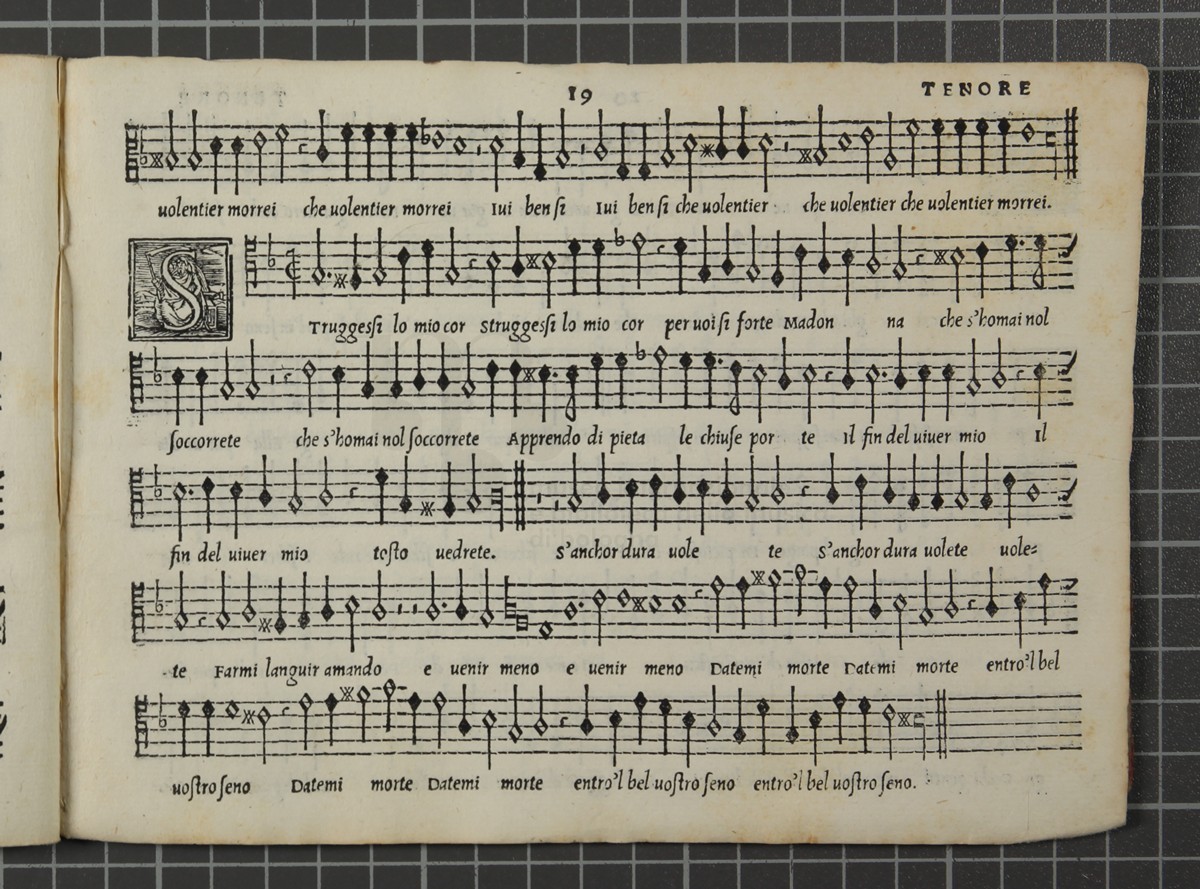 19 TENORE
uolentier morrei che uolentier morrei Iui ben ſi Iui ben ſi che uolentier che uolentier che uolentier morrei.
S
Truggeſſi lo mio cor Struggeſſi lo mio cor per uoi ſi forte Madon na che s'homai nol
ſoccorrete che s'homai nol ſoccorrete Apprendo di pieta le chiuſe por te Il fin del uiuer mio Il
fin del uiuer mio toſto uedrete. S'anchor dura uole te S'anchor dura uolete uole=
te Farmi languir amando e uenir meno e uenir meno Datemi morte Datemi morte entro'l bel
uoſtro ſeno Datemi morte Datemi morte entro'l bel uoſtro ſeno entro'l bel uoſtro ſeno.